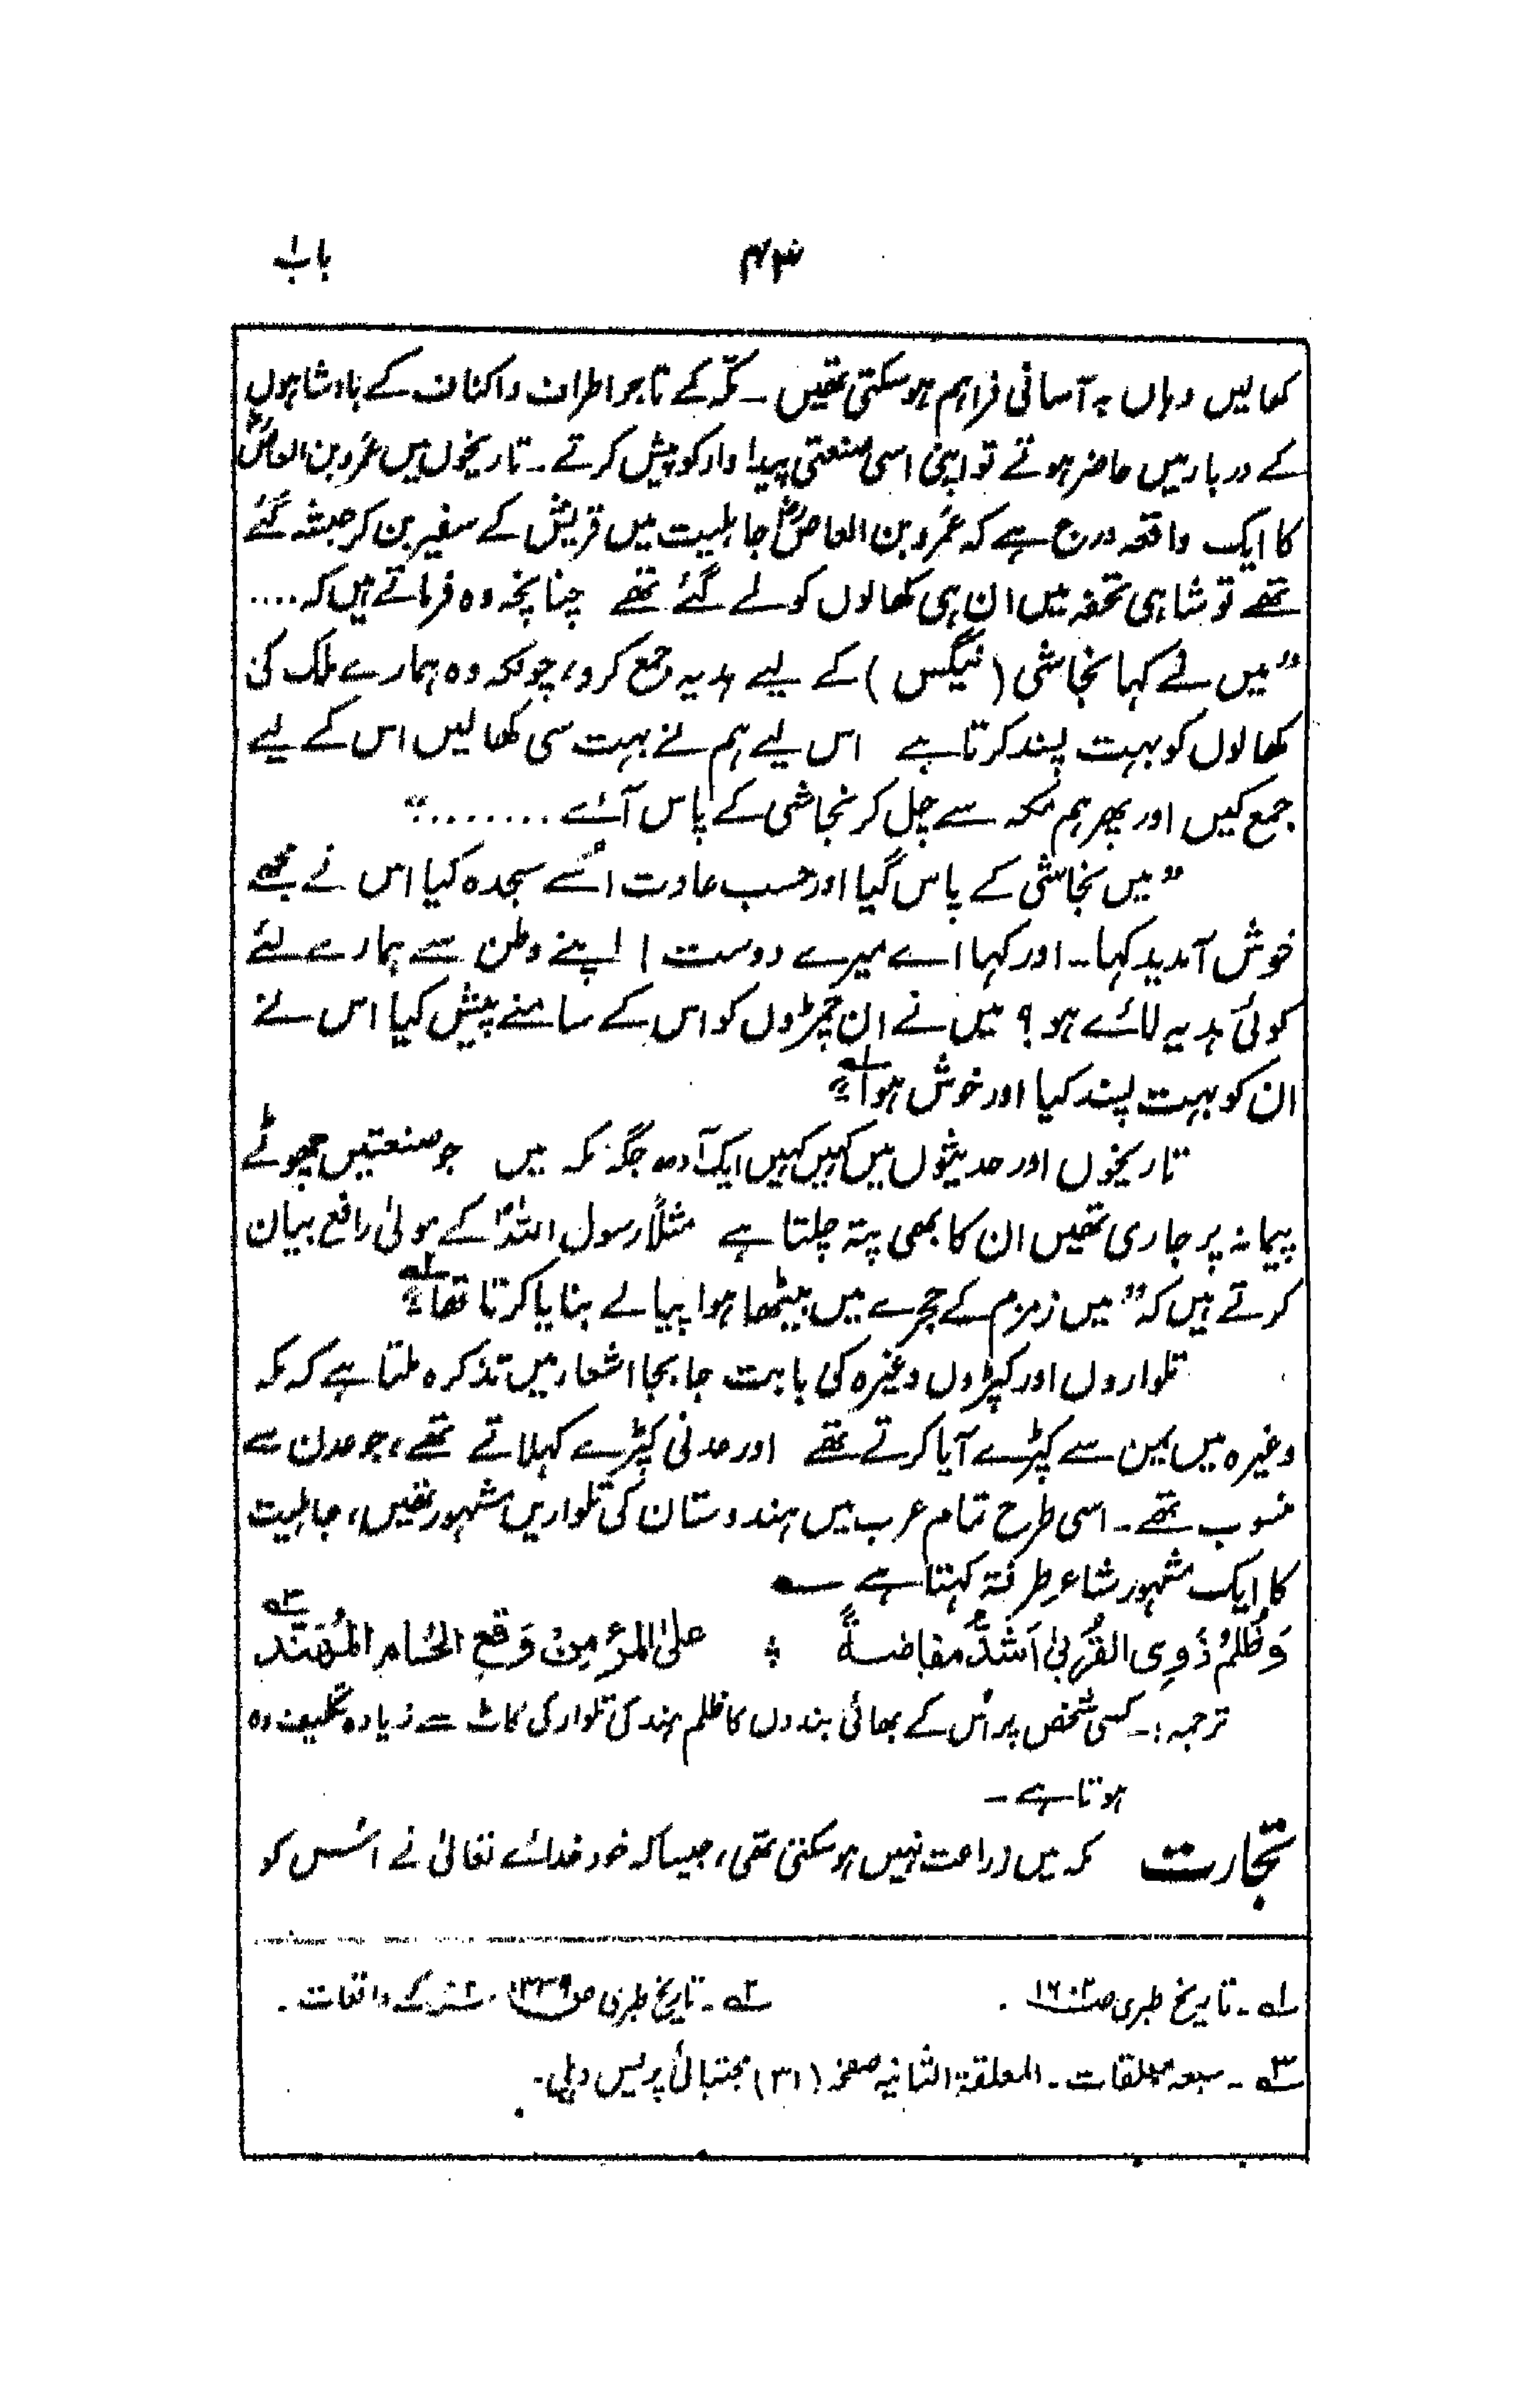 باب ۱
۴۳
کھالیں وہاں بہ آسانی فراہم ہوسکتی تھیں ۔ مکّہ کے تاجر اطراف واکناف کے بادشاہوں
کے دربار میں حاضر ہوتے تو اپنی اسی صنعتی پیدا وار کو پیش کرتے ۔ تاریخوں میں عمرو بن العاصؓ
کا ایک واقعہ درج ہے کہ عمرو بن العاصؓ جاہلیت میں قریش کے سفیر بن کر حبشہ گئے
تھے تو شاہی تحفہ میں ان ہی کھالوں کو لے گئے تھے چنانچہ وہ فرماتے ہیں کہ ....
”میں نے کہا نجاشی (نیگس) کے لیے ہدیہ جمع کرو، چونکہ وہ ہمارے ملک کی
کھالوں کو بہت پسند کرتا ہے اس لیے ہم نے بہت سی کھالیں اس کے لیے
جمع کیں اور پھر ہم مکہ سے چل کر نجاشی کے پاس آئے ........“
”میں نجاشی کے پاس گیا اور حسب عادت اُسے سجدہ کیا اس نے مجھے
خوش آمدید کہا۔ اور کہا اے میرے دوست ! اپنے وطن سے ہمارے لئے
کوئی ہدیہ لائے ہو ؟ میں نے ان چمڑوں کو اس کے سامنے پیش کیا اس نے
ان کو بہت پسند کیا اور خوش ہوا“ ۱؎
تاریخوں اور حدیثوں میں کہیں کہیں ایک آدھ جگہ مکہ میں جو صنعتیں چھوٹے
پیمانہ پر جاری تھیں ان کا بھی پتہ چلتا ہے مثلاً رسول اللہؐ کے مولیٰ رافع بیان
کرتے ہیں کہ ”میں زمزم کے حجرے میں بیٹھا ہوا پیالے بنایا کرتا تھا“ ۲؎
تلواروں اور کپڑوں وغیرہ کی بابت جابجا اشعار میں تذکرہ ملتا ہے کہ مکہ
وغیرہ میں یمن سے کپڑے آیا کرتے تھے اور عدنی کپڑے کہلاتے تھے، جو عدن سے
منسوب تھے ۔ اسی طرح تمام عرب میں ہندوستان کی تلواریں مشہور تھیں، جاہلیت
کا ایک مشہور شاعر طرفۃ کہتا ہے ؎
وَظُلمُ ذَوِی القُربیٰ اَشَدُّ مضاضۃً ؛ علیٰ المرءِ مِنْ وَقعِ الحُسامِ المُهَنَّد ۳؎
ترجمہ :۔ کسی شخص پر اُس کے بھائی بندوں کا ظلم ہند کی تلوار کی کاٹ سے زیادہ تکلیف دہ
ہوتا ہے ۔
تجارت مکہ میں زراعت نہیں ہوسکتی تھی، جیسا کہ خود خدائے تعالیٰ نے اُس کو
۱؎ ۔ تاریخ طبری ص ۱۶۰۲ .
۲؎ ۔ تاریخ طبری ص ۱۳۳۹ . ۲ھ کے واقعات ۔
۳؎ ۔ سبعہ معلقات ۔ المعلقۃ الثانیہ صفحہ (۳۱) مجتبائی پریس دہلی ۔